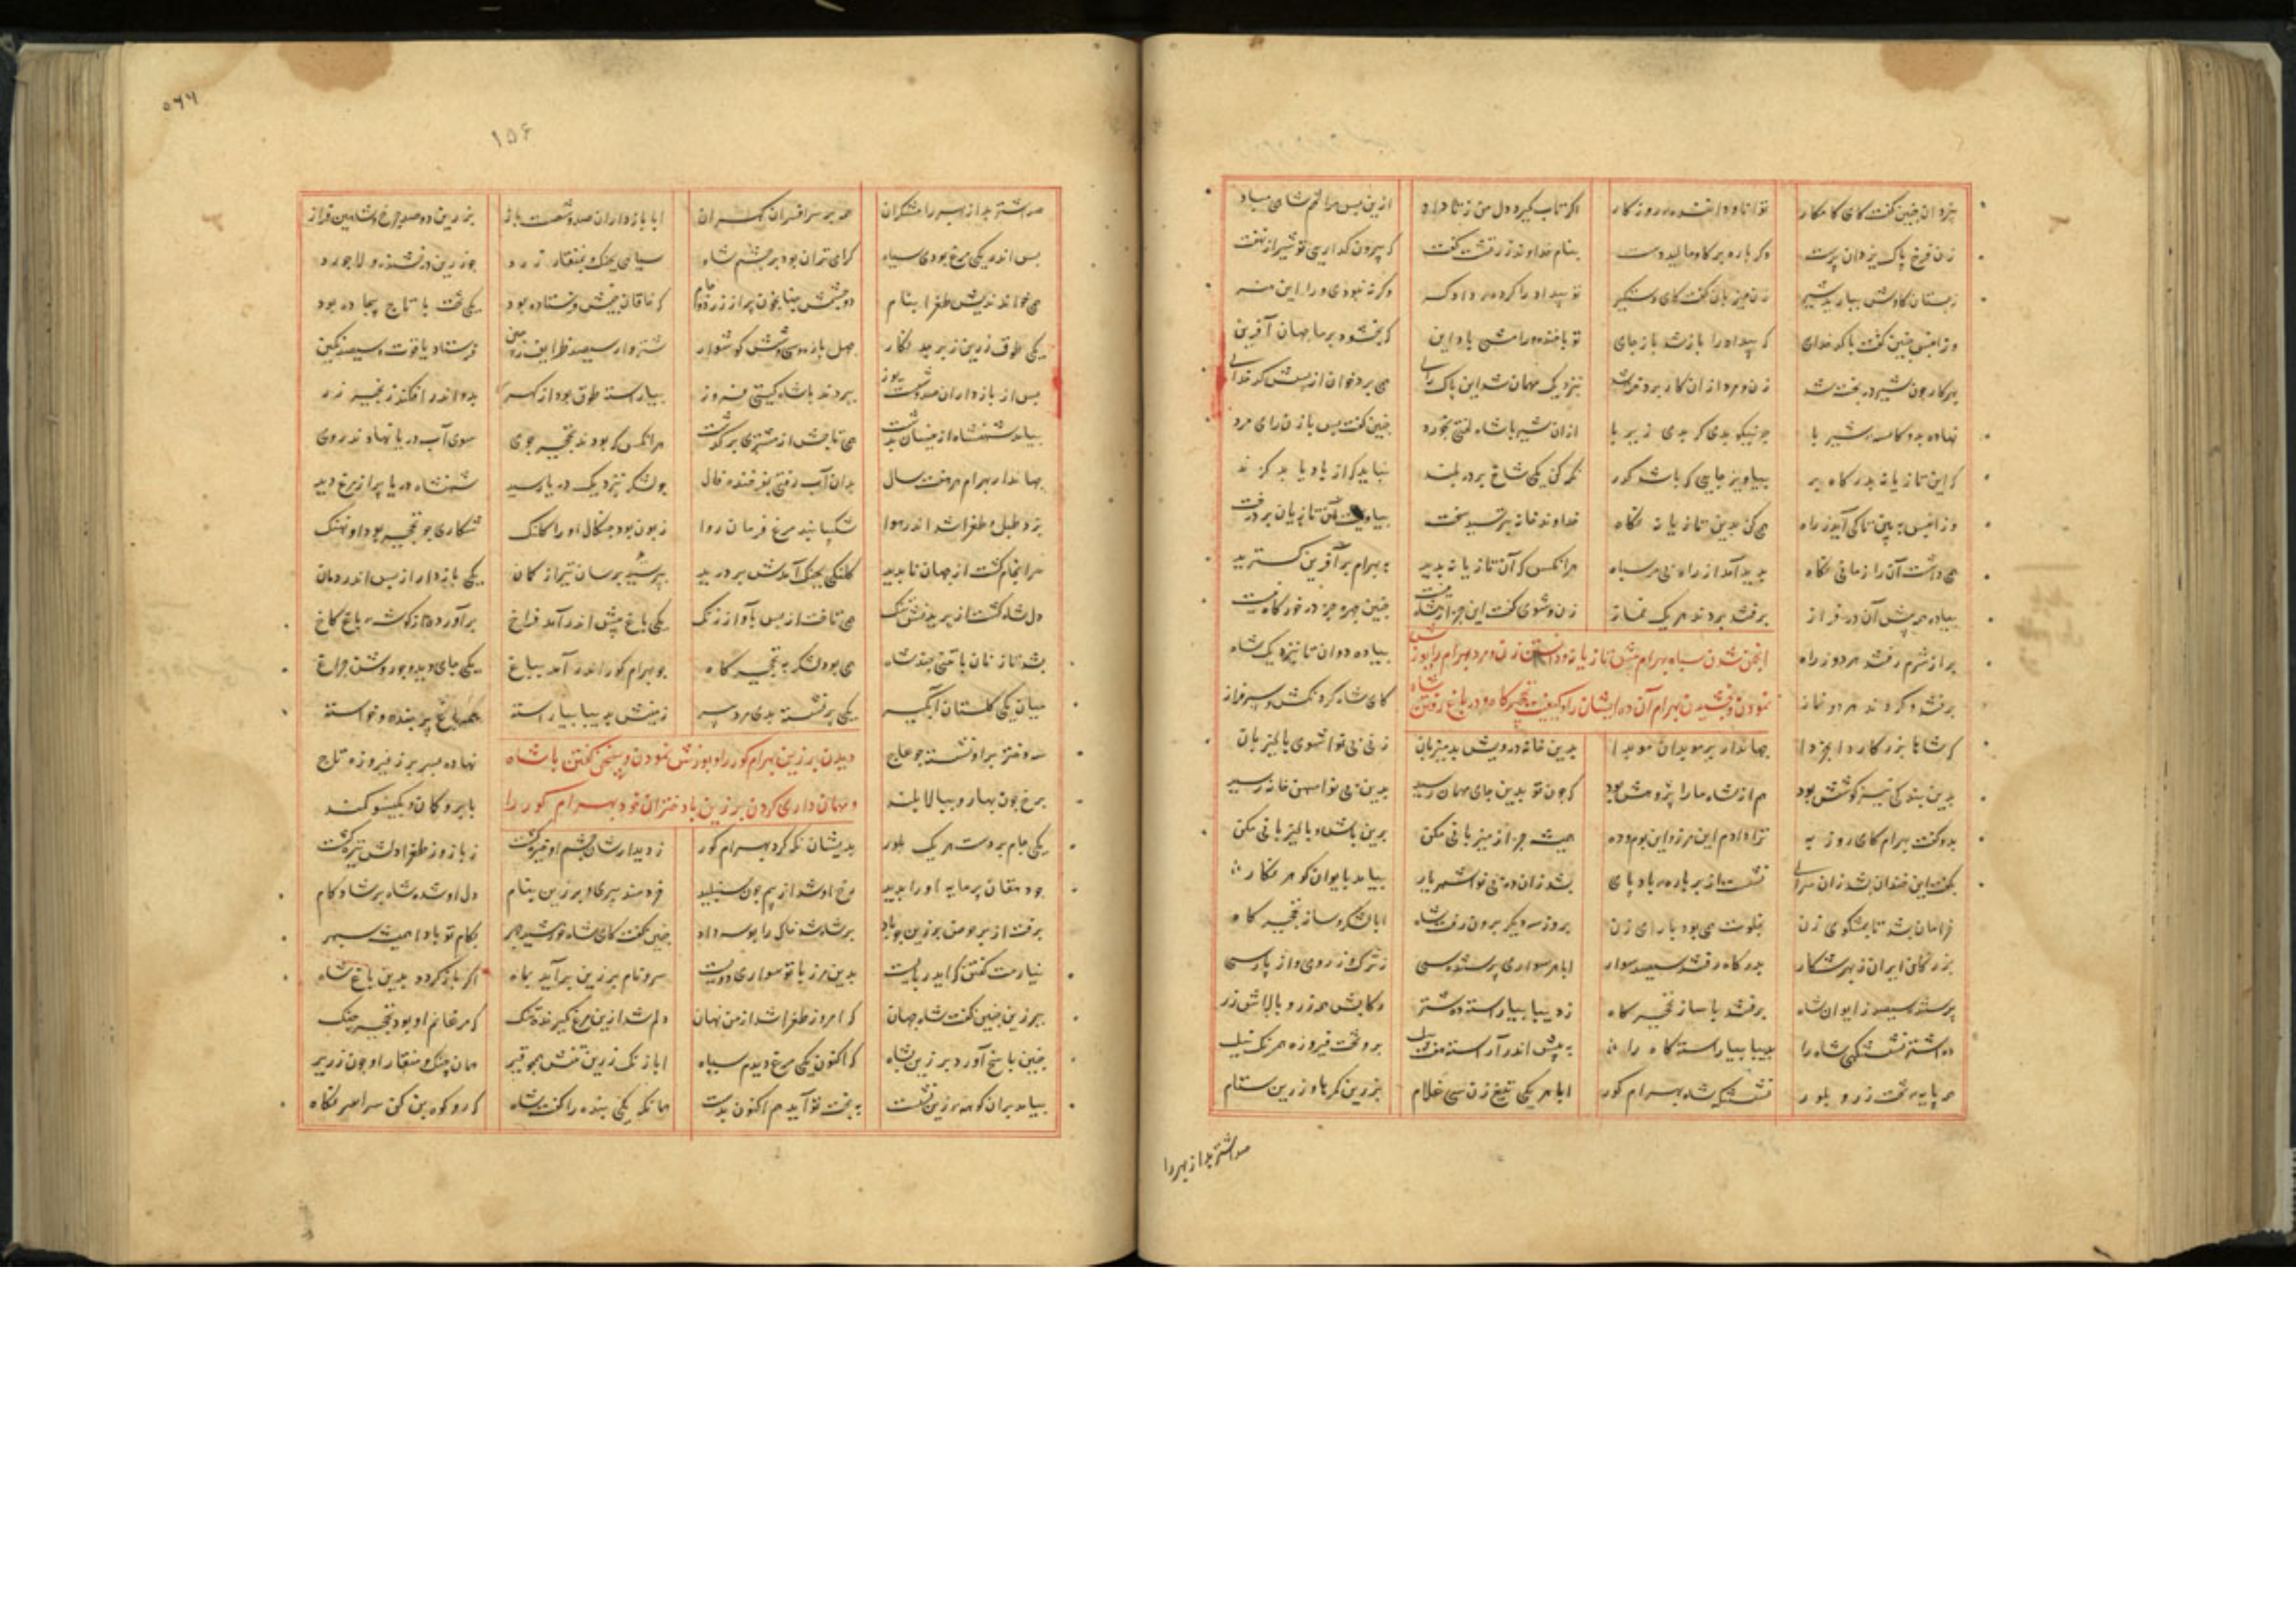 بیزدان چنین گفت کای کامکار توانا و دارنده روزگار اگر تاب گیرد دل من ز داد ازین پس مرا تخم شاهی مباد
زن فرخ پاک یزدان پرست دگر باره بر کاو مالید دست بنام خداوند زرتشت گفت که بیرون گذاری تو شیر از نهفت
ز پستان کاوش ببارید شیر زن میزبان گفت کای دستگیر تو بیداد را کرده داد کر وکرنه نبودی ورا این هنر
وزانپس چنین گفت با کدخدای که بیداد را باز شد باز جای تو با خنده و رامشی باد این که بخشود بر ما جهان آفرین
بهر کار چون شیر در پخته شد زن و مرد از ان کار پردخته شد بنزدیک مهمان شد این پاک رای همی برد خوان از پسش کدخدای
نهاده بدو کاسه شیر با چو نیکو بدی کر بدی زیر با ازان شیر با شاه لختی بخورد چنین گفت پس با زن رای مرد
که این تازیانه بدرگاه بر بیاویز جایی که باشد گذر نکه کن یکی شاخ بر در بلند نباید که از باد یابد کزند
وزانپس ببین تا کی آید ز راه همی کن بدین تازیانه نکاه خداوند خانه بپویید سخت بیاویخت آن تازیان بر درخت
همی داشت آن را زمانی نکاه پدید آمد از راه بی مر سپاه هرانکس که آن تازیانه بدید به بهرام بر آفرین کسترید
پیاده همه پیش آن در فراز برفتند بردند هر یک نماز زن و شوی گفت این جز از شاه نیست چنین چهره جز در خور گاه نیست
پر از شرم رفتند هر دو ز راه پیاده دوان تا بنزدیک شاه
انجمن شدن سپاه بهرام پیش تازیانه و دانستن زن و مرد بهرام را پوزش
برفتند و کردند هر دو نماز که ای شاه کردنکش و سرفراز
نمودن و بخشیدن بهرام آن ده ایشان را و کیفیت نخچیر کاه و در باغ رفتن شاه
که شاها بزرکا ردا بخردا جهاندار بر موبدان موبدا بدین خانه درویش بد میزبان زنی بی نوا شوی پالیزبان
بدین بندکی نیز کوشش نبود هم از شاه ما را پژوهش نبود که چون تو بدین جای مهمان رسید بدین بی نوا میهن خانه رسید
بدو گفت بهرام کای روز به ترا دادم این مرز و این بوم و ده همیشه جز از میزبانی مکن برین باش و پالیزبانی مکن
بگفت این و خندان بشد زان سرای نشست از بر باره باد پای بشد زان ده بی نوا شهریار بیامد بایوان کوهر نکار
خرامان بشد تا بمشکوی زن بخلوت همی بود با رای زن بروز سه دیکر برون رفت شاه ابا لشکر و ساز نخجیر کاه
بزرکان ایران ز بهر شکار بدرکاه رفتند سیصد سوار ابا هر سواری پرستنده سی ز ترک و ز رومی و از پارسی
پرستنده سیصد ز ایوان شاه برفتند با ساز نخجیر کاه ز دیبا بیاراسته ده شتر رکابش همه زر و پالاش زر
ده اشتر نشستنکهی شاه را بدیبا بیاراسته کاه را به پیش اندر آراسته هفت پیل برو تخت فیروزه همرنک نیل
همه پایه تخت زر و بلور نشستنکه شاه بهرام کور ابا هر یکی تیغ زن سی غلام بزرین کمرها و زرین ستام
صد اشتر بد از بهر را
۵۶۶
۱۵۶
صد اشتر بد از بهر رامشکران همه بر سر افسران کران ابا بازداران صد و شصت باز بزرین ده صد چرغ و شاهین فراز
پس اندر یکی مرغ بودی سیاه کرامی تر آن بود بر چشم شاه سیاهی بچنک و بمنقار زرد چو زرین درفشنده و لاجورد
همی خواندندیش طغرا بنام دو چشمش چنانچون پر از زر دو جام که خاقان چینش فرستاده بود یکی تخت با تاج بیجاده بود
یکی طوق زرین زبرجد نکار چهل یاره و سی و شش کوشوار شتروار سیصد ظرایف ز چین فرستاد یاقوت و سیصد نکین
پس از بازداران صد و شصت یوز ببردند با شاه کیتی فروز بیاراسته طوق یوز از کهر بدو اندر افکنده زنجیر زر
بیامد شهنشاه ازینسان بدشت همی تاجش از مشتری بر کذشت هرانکس که بودند نخجیر جوی سوی آب دریا نهادند روی
جهاندار بهرام هر هفت سال بدان آب رفتی بفرخنده فال چو لشکر بنزدیک دریا رسید شهنشاه دریا پر از مرغ دید
بزد طبل و طغرا شد اندر هوا شکیبا نبد مرغ فرمان روا زبون بود چنکال او را کلنک شکاری چو نخجیر بود او نهنک
سرانجام گشت از جهان ناپدید کلنکی بچنک آمدش بر درید بپرید برسان تیر از کمان یکی بازدار از پس اندر دمان
دل شاه گشت از پریدنش تنک همی تاخت از پس بآواز زنک یکی باغ پیش اندر آمد فراخ برآورده از کوشه باغ کاخ
بشد تازنان با تنی چند شاه همی بود لشکر به نخجیر کاه چو بهرام کور اندر آمد بباغ یکی جای دید و برو شست چراغ
میان یکی کلستان آبکیر یکی بر نشسته بدی مرد پیر زمینش بدیبا بیاراسته همه باغ پر بنده و خواسته
سه دختر بر او نشسته چو عاج نهاده بسر بر ز فیروزه تاج
دیدن برزین بهرام کور را و پوزش نمودن و سخن کفتن با شاه
برخ چون بهار و ببالا بلند بابرو کمان و بکیسو کمند
و مهمان داری کردن برزین با دختران خود بهرام کور را
یکی جام بر دست هر یک بلور بدیشان نکه کرد بهرام کور ز دیدارشان چشم او خیره گشت ز باز و ز طغرا دلش تیره گشت
چو دهقان پرمایه او را بدید رخ او شد از بیم چون شنبلید خردمند پیری و برزین بنام دل او شده شاه بر شاد کام
برفت از بر حوض برزین چو باد بر شاه شد خاک را بوسه داد چنین گفت کای شاه خورشید چهر بکام تو بادا همیشه سپهر
نیارمت کفتن که ایدر بایست بدین مرز با تو سواری دویست سر و نام برزین برآید بماه اگر باز کردد بدین باغ شاه
ببرزین چنین گفت شاه جهان که امروز طغرا شد از من نهان دلم شد ازین مرغ گیرنده تنک که مرغانم او بود نخجیر جنک
چنین پاسخ آورد برزین بشاه که اکنون یکی مرغ دیدم سیاه ابا زنک زرین تنش همچو قیر همان چنک و منقار او چون زریر
بیامد بران کوهر زین نشست به بخت تو آید هم اکنون بدست همانکه یکی بنده را گفت شاه که رو کوه بن کن سراسر نکاه